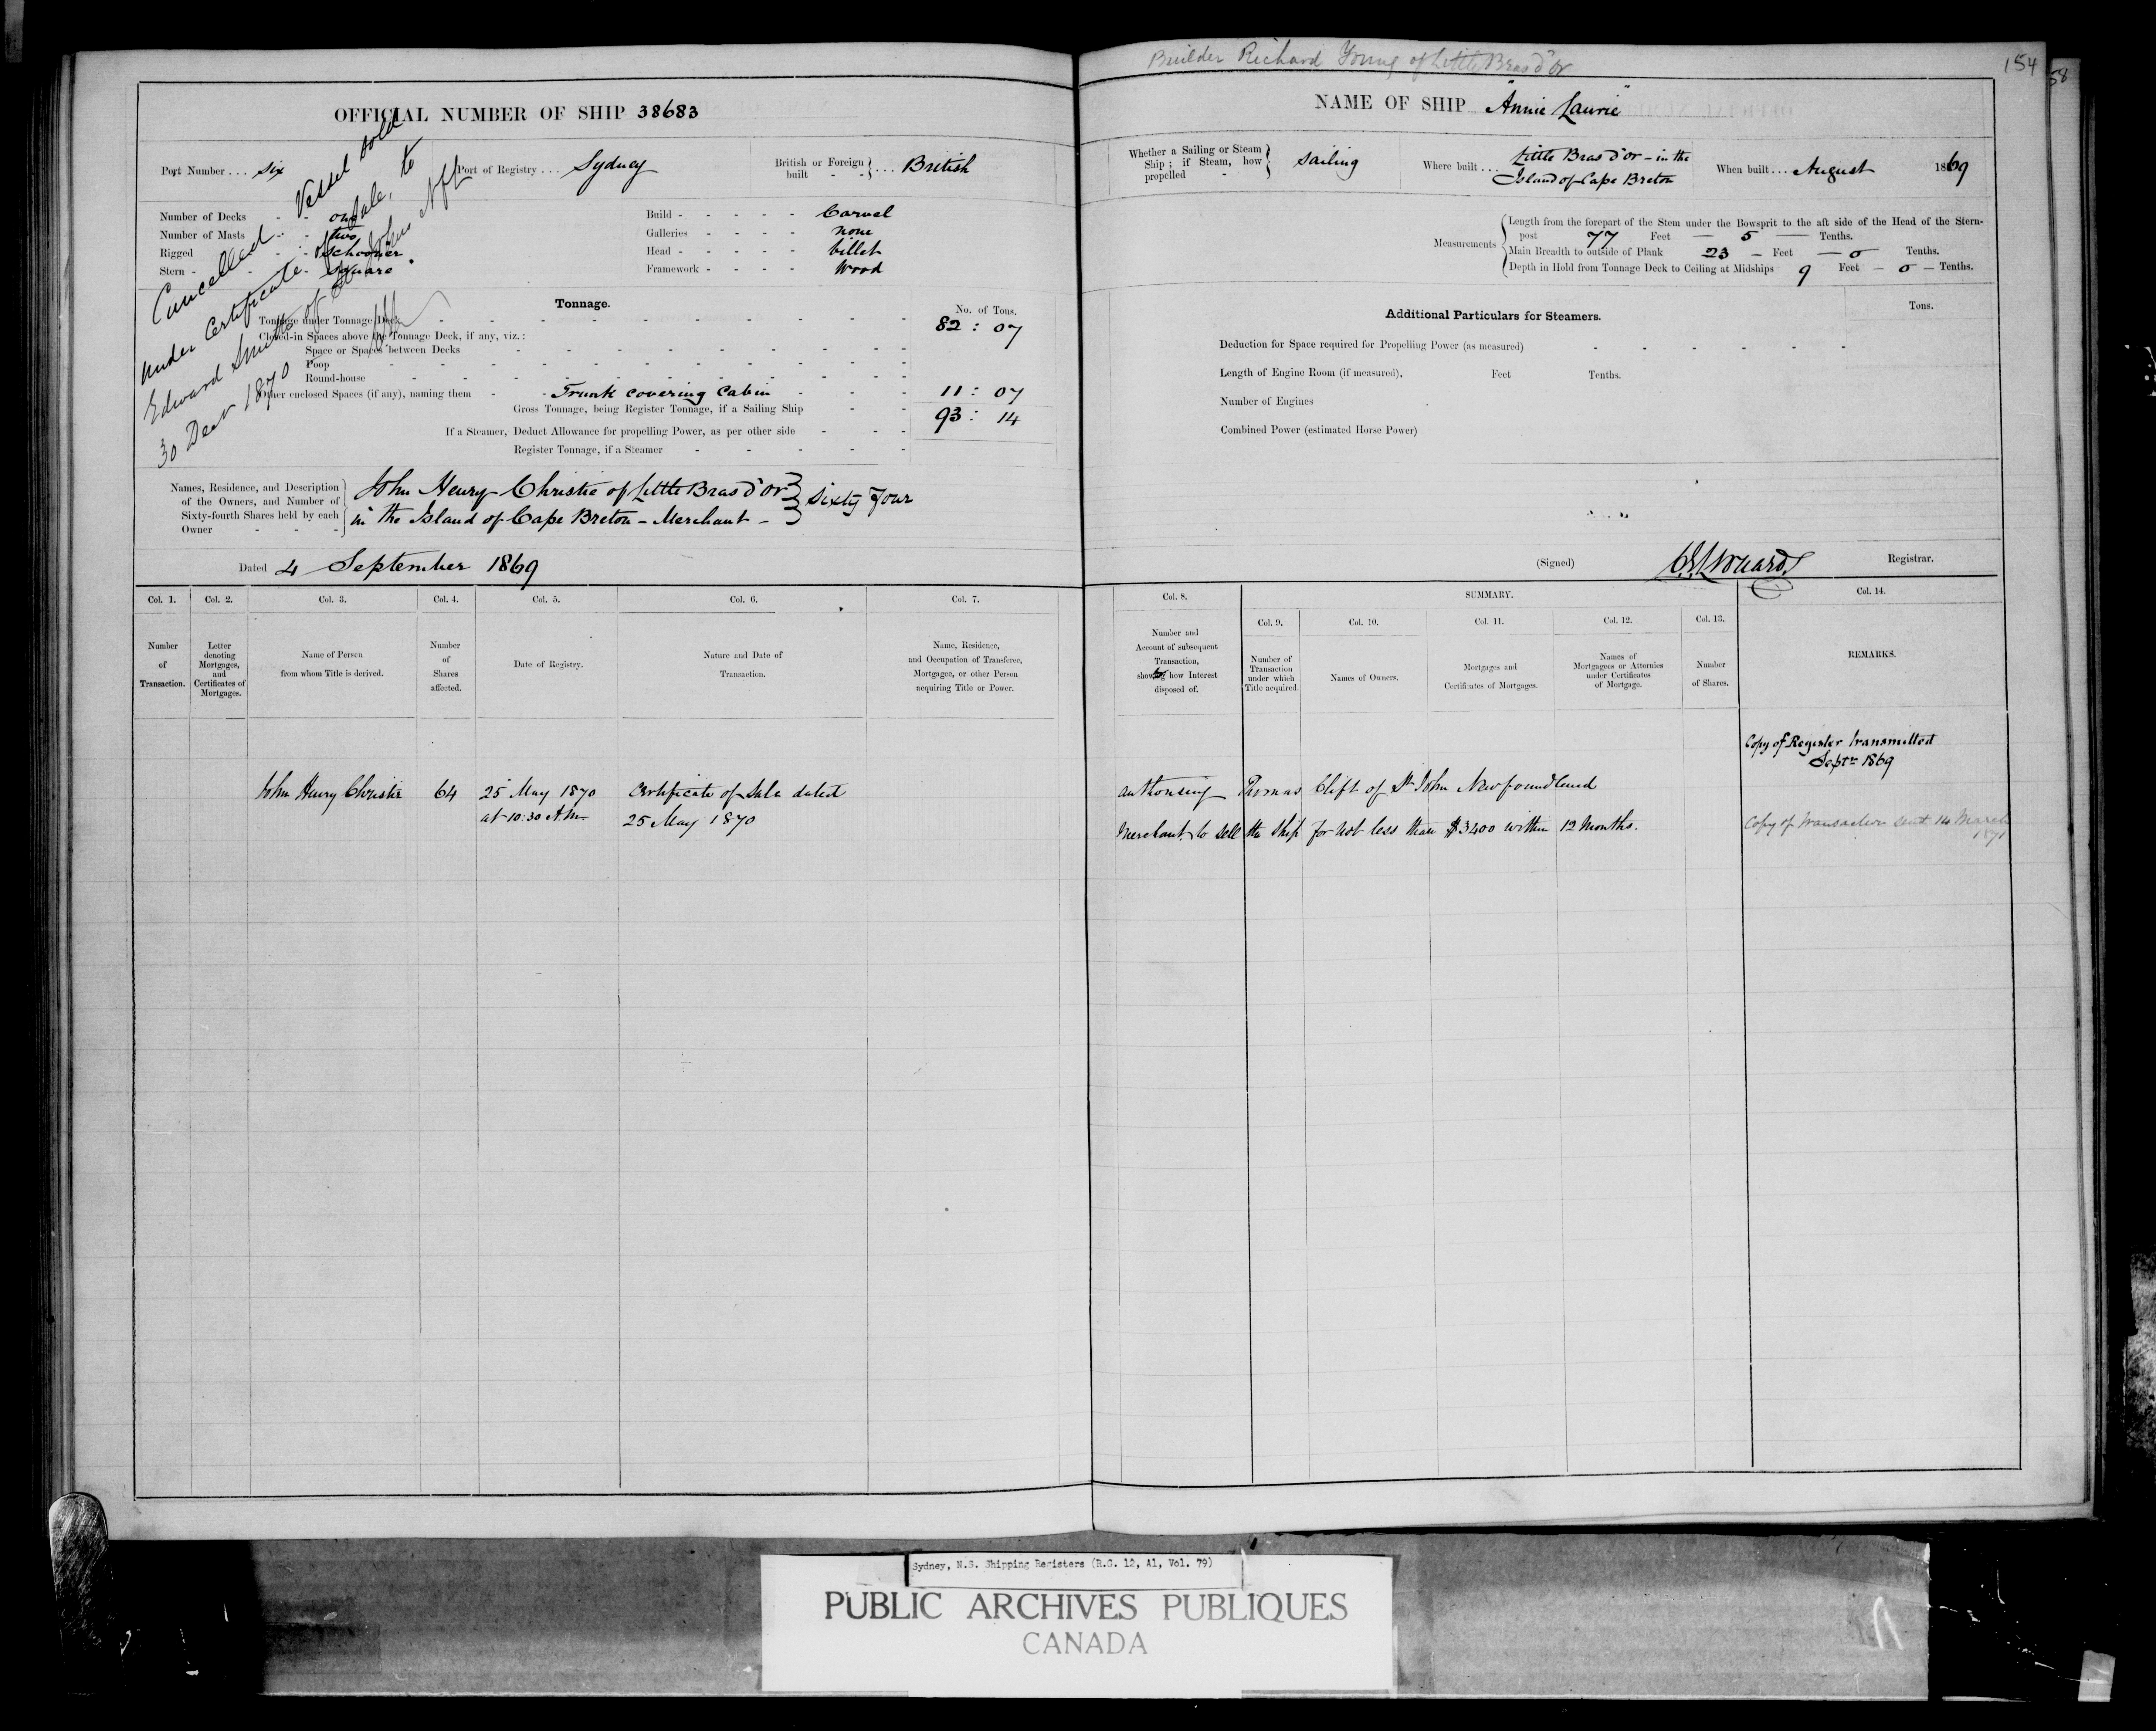 Builder Richard Young of Little Bras d'Or
154
58
OFFICIAL NUMBER OF SHIP 38683
NAME OF SHIP "Annie Laurie"
Port Number ... six
Port of Registry ... Sydney
British or Foreign built - - } ... British
Whether a Sailing or Steam Ship ; if Steam, how propelled - } Sailing
Where built .... Little Bras d'or - in the
Island of Cape Breton
When built ... August 1869
Number of Decks - - one
Number of Masts - - two
Rigged - - Schooner
Stern - - - Square
Build - - - - - Carvel
Galleries - - - - none
Head - - - - - billet
Framework - - - - Wood
Measurements
Length from the forepart of the Stem under the Bowsprit to the aft side of the Head of the Stern-
post 77 Feet — 5 — Tenths.
Main Breadth to outside of Plank 23 — Feet — 0 Tenths.
Depth in Hold from Tonnage Deck to Ceiling at Midships 9 Feet — 0 — Tenths.
Cancelled Vessel sold
under Certificate of Sale, to
Edward Smith of St Johns Nfld
30 Decr 1870
Tonnage.
No. of Tons.
Tonnage under Tonnage Deck - 82 : 07
Closed-in Spaces above the Tonnage Deck, if any, viz. :
Space or Spaces between Decks
Poop
Round-house
Other enclosed Spaces (if any), naming them - - Trunk covering Cabin - - - 11 : 07
Gross Tonnage, being Register Tonnage, if a Sailing Ship - - 93 : 14
If a Steamer, Deduct Allowance for propelling Power, as per other side - - -
Register Tonnage, if a Steamer - - - - -
Additional Particulars for Steamers.
Tons.
Deduction for Space required for Propelling Power (as measured) - - - - - -
Length of Engine Room (if measured), Feet Tenths.
Number of Engines
Combined Power (estimated Horse Power)
Names, Residence, and Description
of the Owners, and Number of
Sixty-fourth Shares held by each
Owner - - -
John Henry Christie of Little Bras d'Or
in the Island of Cape Breton - Merchant - } Sixty Four
Dated 4 September 1869
(Signed) Registrar.
Col. 1.
Number
of
Transaction.
Col. 2.
Letter
denoting
Mortgages,
and
Certificates of
Mortgages.
Col. 3.
Name of Person
from whom Title is derived.
Col. 4.
Number
of
Shares
affected.
Col. 5.
Date of Registry.
Col. 6.
Nature and Date of
Transaction.
Col. 7.
Name, Residence,
and Occupation of Transferee,
Mortgagee, or other Person
acquiring Title or Power.
Col. 8.
Number and
Account of subsequent
Transaction,
showing how Interest
disposed of.
SUMMARY.
Col. 9.
Number of
Transaction
under which
Title acquired.
Col. 10.
Names of Owners.
Col. 11.
Mortgages and
Certificates of Mortgages.
Col. 12.
Names of
Mortgagees or Attornies
under Certificates
of Mortgage.
Col. 13.
Number
of Shares.
Col. 14.
REMARKS.
Copy of Register transmitted
Septr 1869
John Henry Christie 64 25 May 1870 Certificate of Sale dated authorising Thomas Clift of St John Newfoundland
at 10:30 A.M. 25 May 1870 Merchant to sell the Ship for not less than $3400 within 12 Months.
Copy of transaction sent 14 March
1871
Sydney, N.S. Shipping Registers (R.G. 12, A1, Vol. 79)
PUBLIC ARCHIVES PUBLIQUES
CANADA